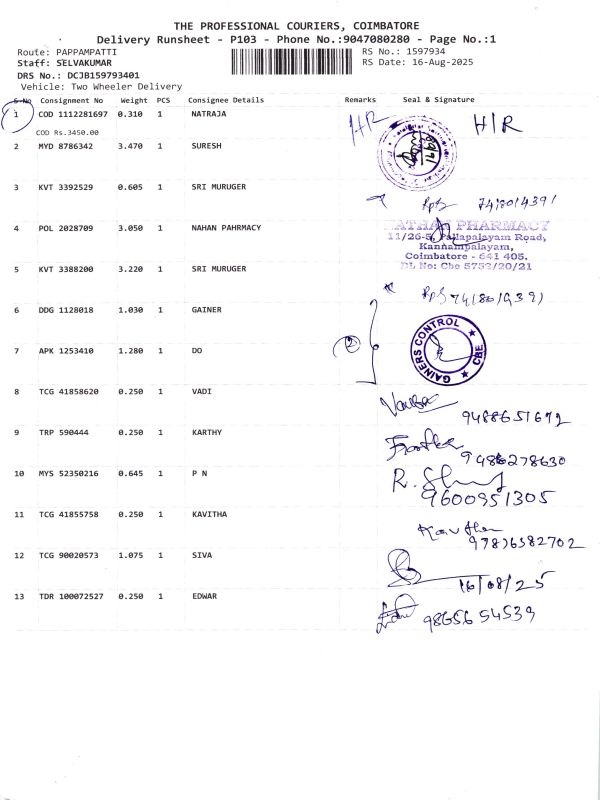 THE PROFESSIONAL COURIERS, COIMBATORE
Delivery Runsheet - P103 - Phone No.:9047080280 - Page No.:1
Route: PAPPAMPATTI RS No.: 1597934
Staff: SELVAKUMAR RS Date: 16-Aug-2025
DRS No.: DCJB159793401
Vehicle: Two Wheeler Delivery
S-No Consignment No Weight PCS Consignee Details Remarks Seal & Signature
1 COD 1112281697 0.310 1 NATRAJA H/R H/R
COD Rs.3450.00
2 MYD 8786342 3.470 1 SURESH
3 KVT 3392529 0.605 1 SRI MURUGER
4 POL 2028709 3.050 1 NAHAN PAHRMACY
PHARMACY
11/26-5, Pallapalayam Road,
Kannampalayam,
Coimbatore - 641 405.
DL No: Cbe 5752/20/21
5 KVT 3388200 3.220 1 SRI MURUGER
6 DDG 1128018 1.030 1 GAINER
GAINERS CONTROL CBE
7 APK 1253410 1.280 1 DO 2
8 TCG 41858620 0.250 1 VADI
9488651672
9 TRP 590444 0.250 1 KARTHY
9486278630
10 MYS 52350216 0.645 1 P N
9600951305
11 TCG 41855758 0.250 1 KAVITHA
97876582702
12 TCG 90020573 1.075 1 SIVA
16/08/25
13 TDR 100072527 0.250 1 EDWAR
9865654539